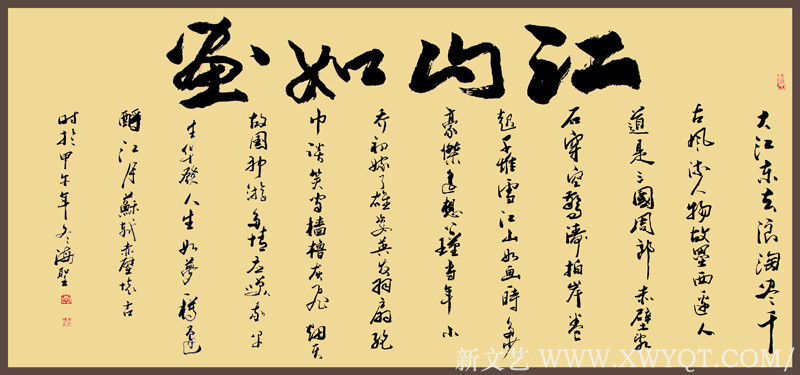 江山如畫
大江东去浪淘尽千
古风流人物故壘西邊人
道是三國周郎赤壁乱
石穿空驚濤拍岸卷
起千堆雪江山如画時多少
豪傑遥想公瑾当年小
乔初嫁了雄姿英发羽扇纶
巾谈笑间樯櫓灰飞烟灭
故国神游多情应笑我早
生华發人生如夢一樽還
酹江月蘇軾赤壁懷古
时於甲午年冬海聖
新文艺 WWW.XWYQT.COM/